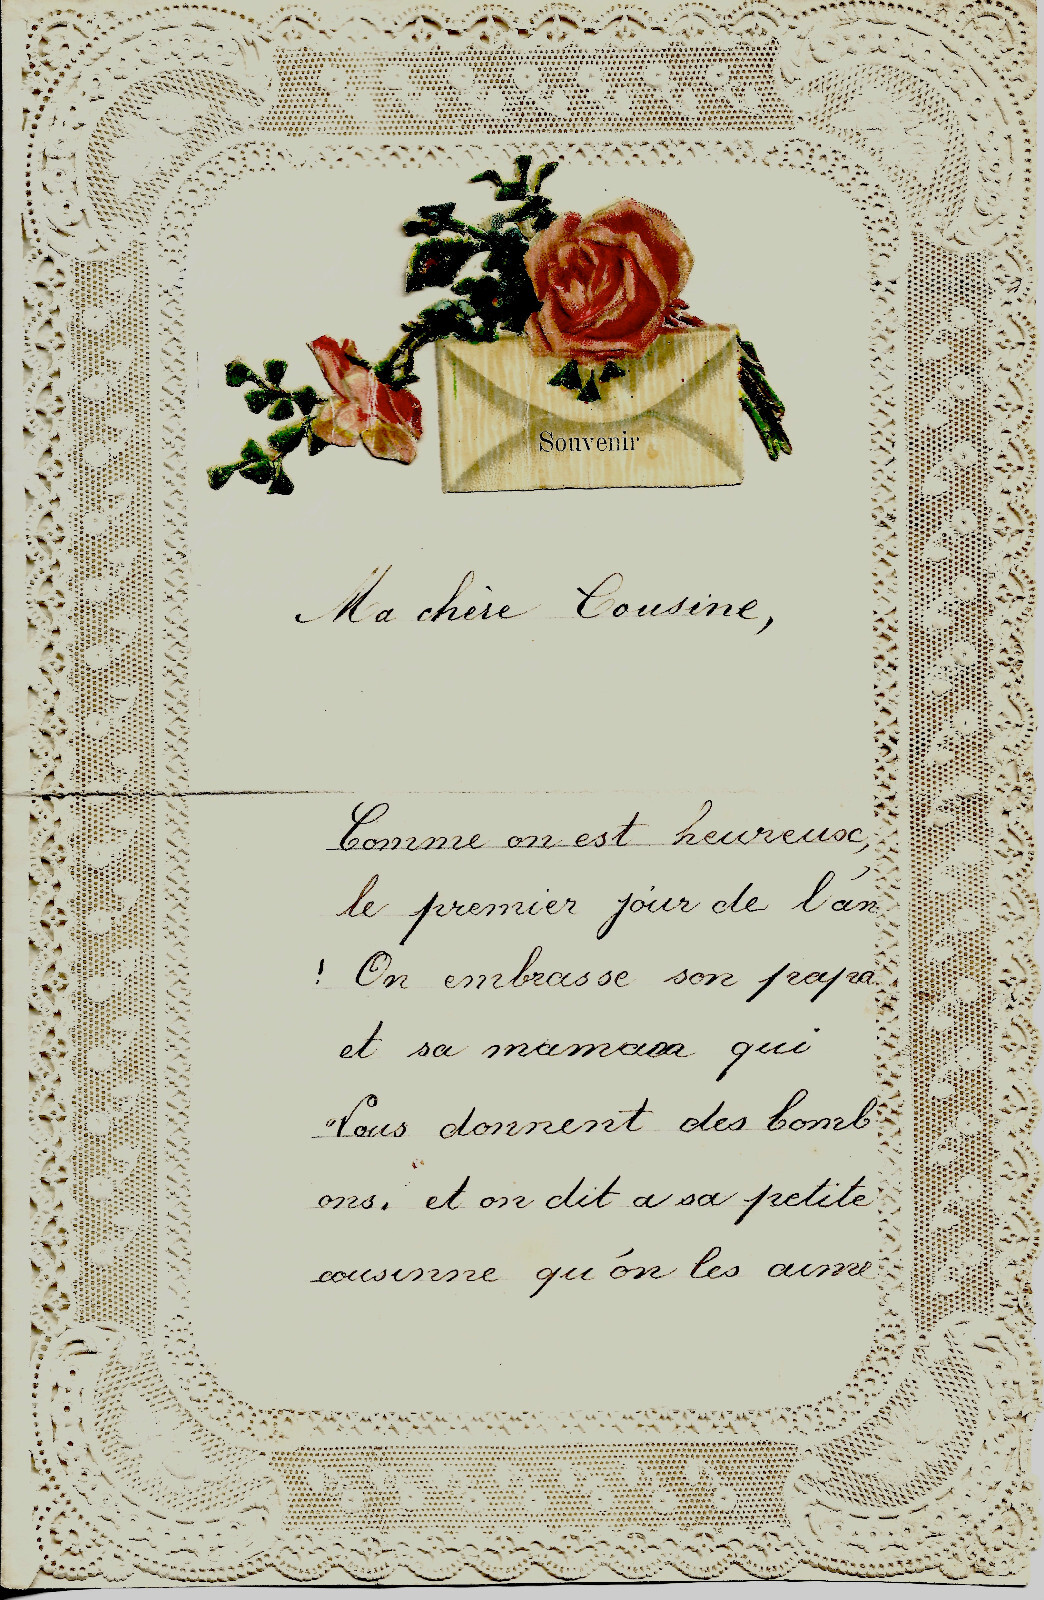 Souvenir
Ma chère Cousine,
Comme on est heureux,
le premier jour de l'an
! On embrasse son papa
et sa maman qui
Vous donnent des bomb
ons. et on dit a sa petite
cousinne qu'on les aime